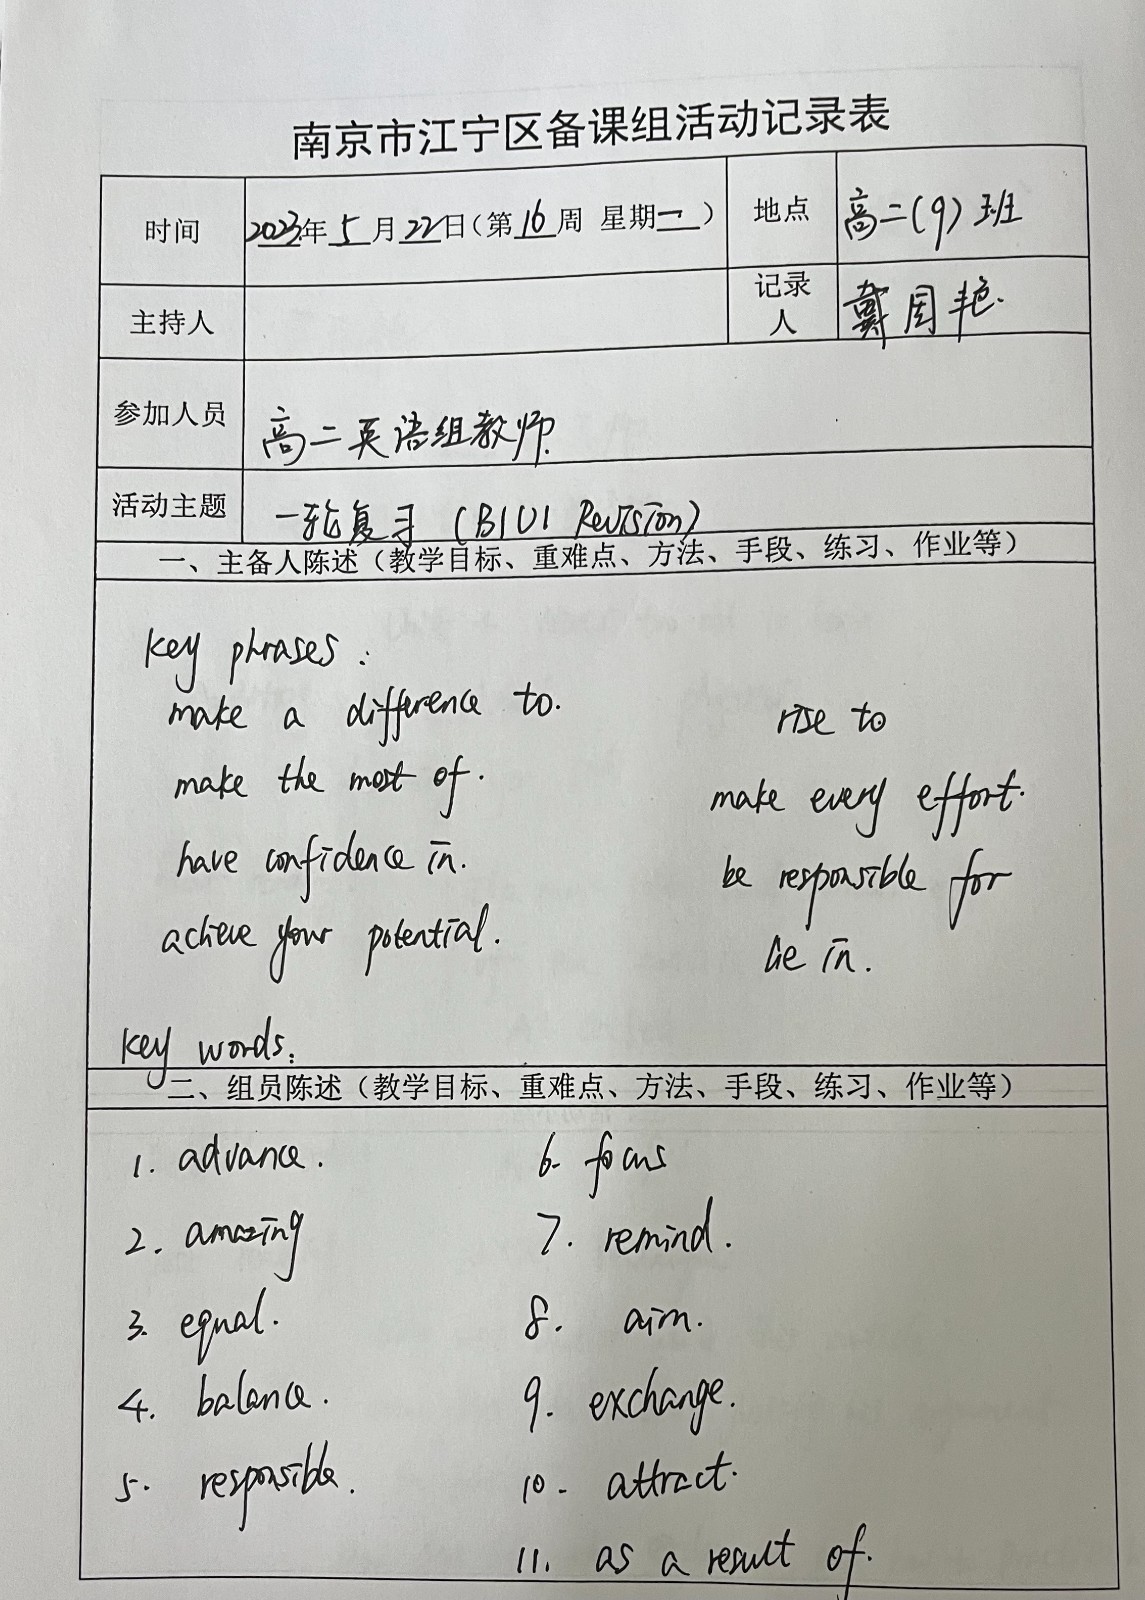 南京市江宁区备课组活动记录表
时间 2023年5月22日(第16周 星期一) 地点 高二(9)班
主持人 记录人 戴国艳.
参加人员 高二英语组教师.
活动主题 一轮复习 (B1U1 Revision)
一、主备人陈述（教学目标、重难点、方法、手段、练习、作业等）
key phrases:
make a difference to. rise to
make the most of. make every effort.
have confidence in. be responsible for
achieve your potential. lie in.
key words:
二、组员陈述（教学目标、重难点、方法、手段、练习、作业等）
1. advance. 6. focus
2. amazing 7. remind.
3. equal. 8. aim.
4. balance. 9. exchange.
5. responsible. 10. attract.
11. as a result of.